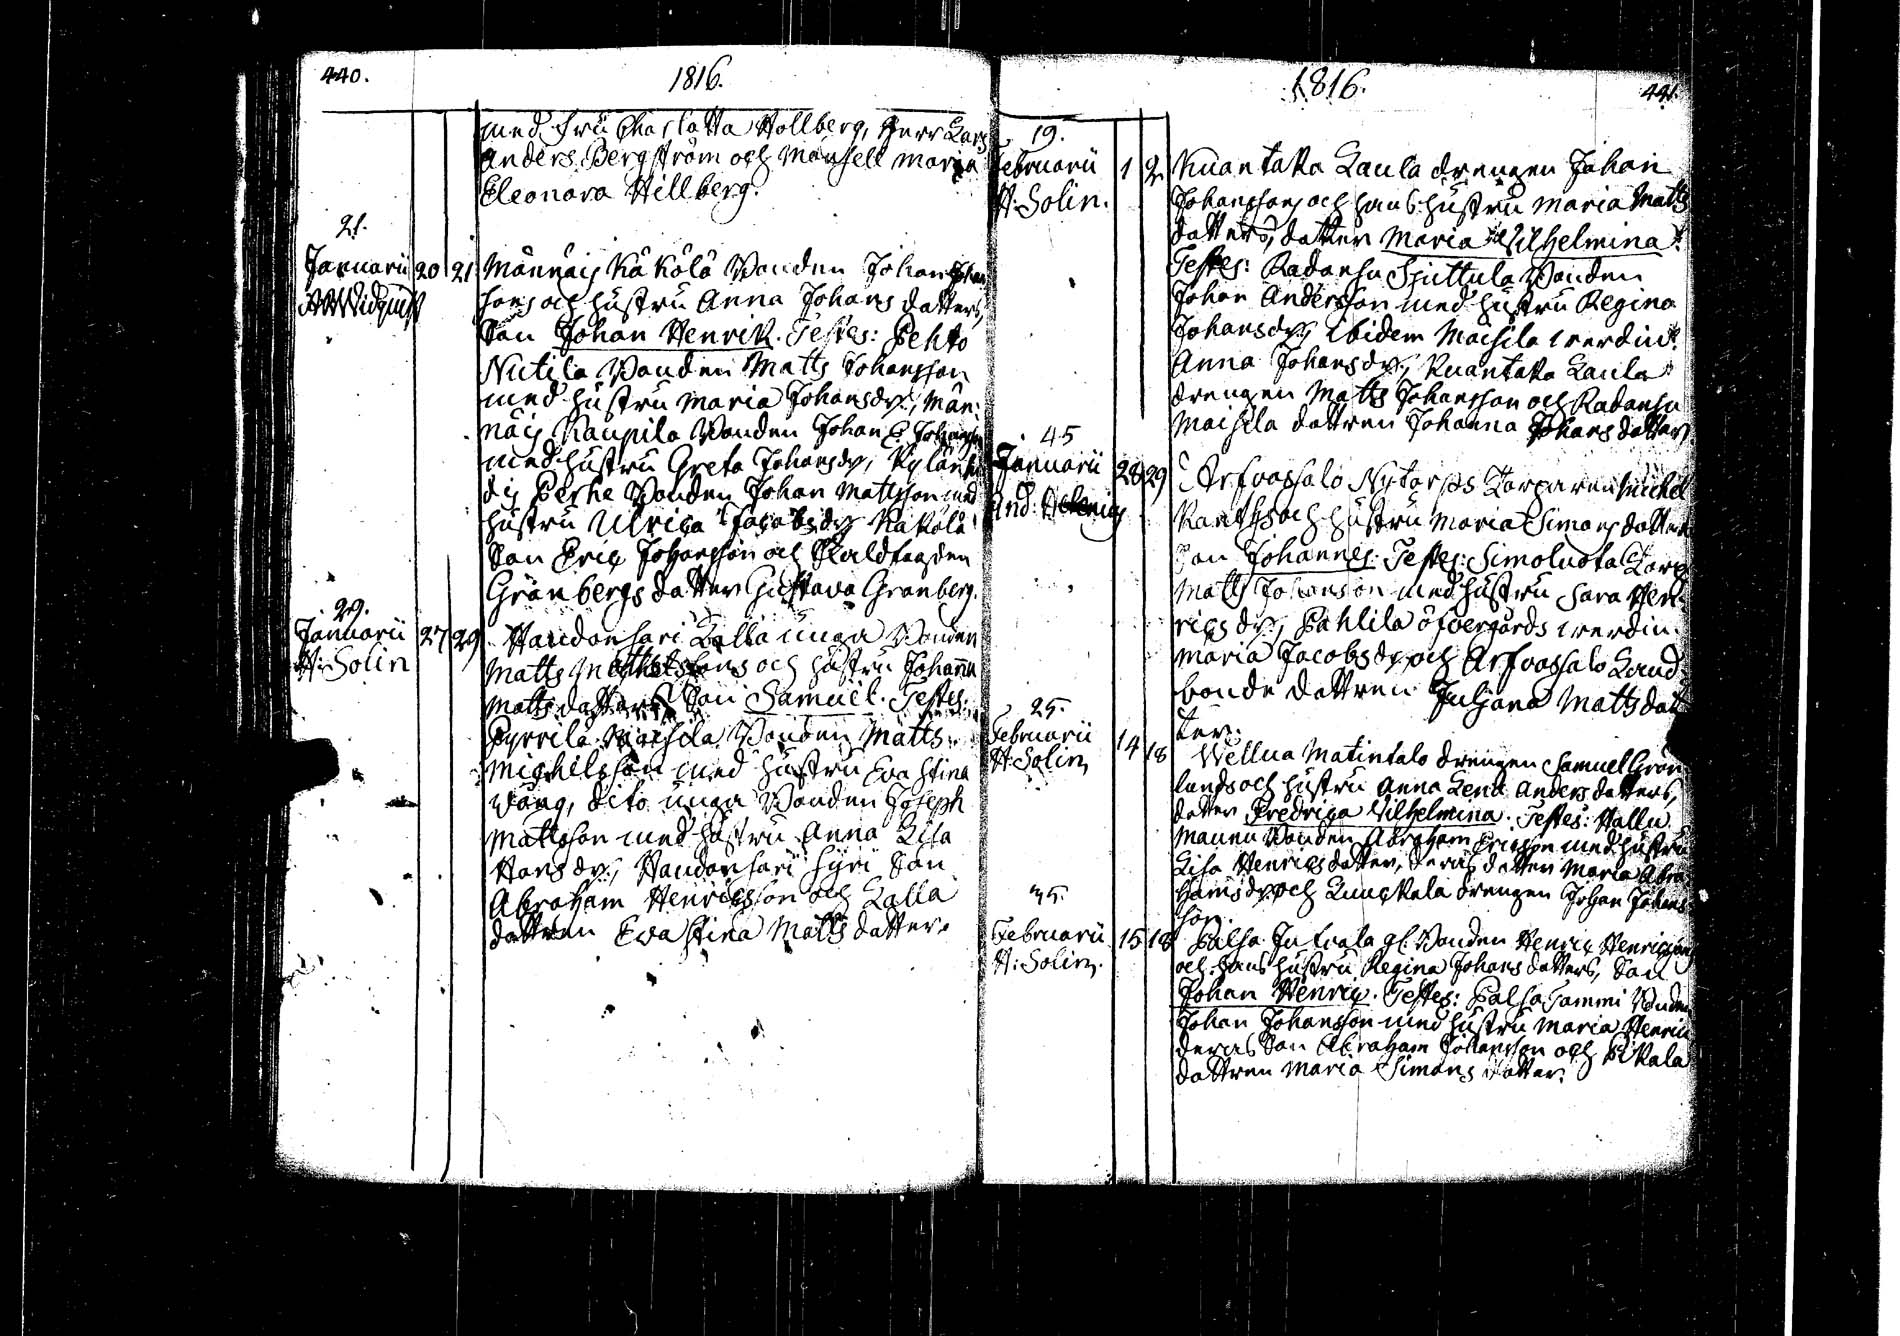 440.
1816.
med Fru Charlotta Hollberg, Herr Lars
Anders Bergström och Mamsell Maria
Eleonora Hillberg.
21.
Januarii 20 21 Männäis Käkölä Bonden Johan Johan
sons och hustru Anna Johans datters,
Son Johan Henrik. Testes: Pehto
Nutila Bonden Matts Johansson
med hustru Maria Johansdr., Män-
näis Kaupila Bonden Johan E Johansson
med hustru Greta Johansdr,
Perhe Bonden Johan Mattsson med
hustru Ulrica Jacobsdr Käkölä
Son Eric Johansson och
Grönbergs datter Gustava Grönberg.
29.
Januarii 27 29 Haudonsari Lalla unga Bonden
H: Solin
Matts sons och hustru Johanna
Matts datters Son Samuel. Testes:
Pyrrilä Bonden Matts
Michilsson med hustru Eva Stina
dito unga Bonden Joseph
Mattsson med hustru Anna Lisa
Hansdr., Haudonsari Syri Son
Abraham Henricsson och Lalla
dottren Eva Stina Matts datter.
1816.
441.
19.
Februarii 1 2 Kuantaka Laula drengen Johan
H: Solin.
Johanssons och hans hustru Maria Matts
datters, datter Maria Vilhelmina.
Testes: Radansu Sjuttula Bonden
Johan Andersson med hustru Regina
Johansdr., ibidem Maisila werdin:
Anna Johansdr., Kuantaka Laula
drengen Matts Johansson och Radansu
Maisila dottren Johanna Johans datter
45
Januarii 28 29 Arfvassalo Nytorps Torparen Michel
och hustru Maria Simons datters
Son Johannes. Testes: Simoluota Torp.
Matts Johansson med hustru Sara Hen-
rics dr., Pahlila öfvergårds werdin.
Maria Jacobsdr. och Arfvassalo Land
bonde dottren Juliana Matts dat
ter.
25.
Februarii 14 18 Wellua Matintalo drengen Samuel Grön
H: Solin,
lunds och hustru Anna Lena Anders datters,
datter Fredrica Vilhelmina. Testes: Hallu
Mannu Bonden Abraham Ericsson med hustru
Lisa Henricsdatter, deras datter Maria Abra
hamsdr. och drengen Johan Johans
son.
35.
Februarii 15 18 Palsa Jutvala gl. Bonden Henric Henricssons
H: Solin.
och hans hustru Regina Johans datters, Son
Johan Henric. Testes: Palsa Tammi Bonden
Johan Johansson med hustru Maria Henrics
deras Son Abraham Johansson och Pikala
dottren Maria Simons datter.